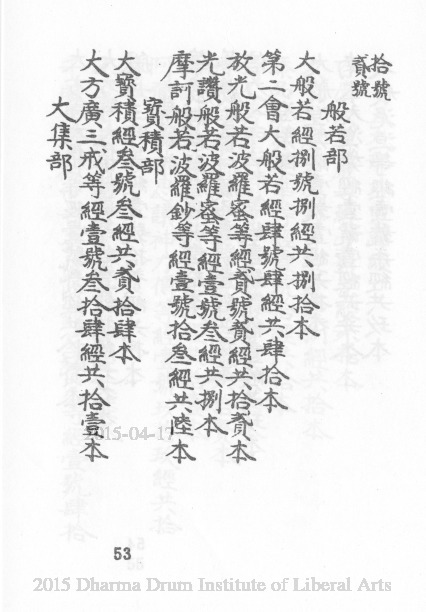 拾號
貳號
般若部
大般若經捌號捌經共捌拾本
第二會大般若經肆號肆經共肆拾本
放光般若波羅蜜等經貳號貳經共拾貳本
光讚般若波羅蜜等經壹號叁經共捌本
摩訶般若波羅鈔等經壹號拾叁經共陸本
寶積部
大寶積經叁號叁經共貳拾肆本
大方廣三戒等經壹號叁拾肆經共拾壹本
大集部
2015-04-17
53
2015 Dharma Drum Institute of Liberal Arts